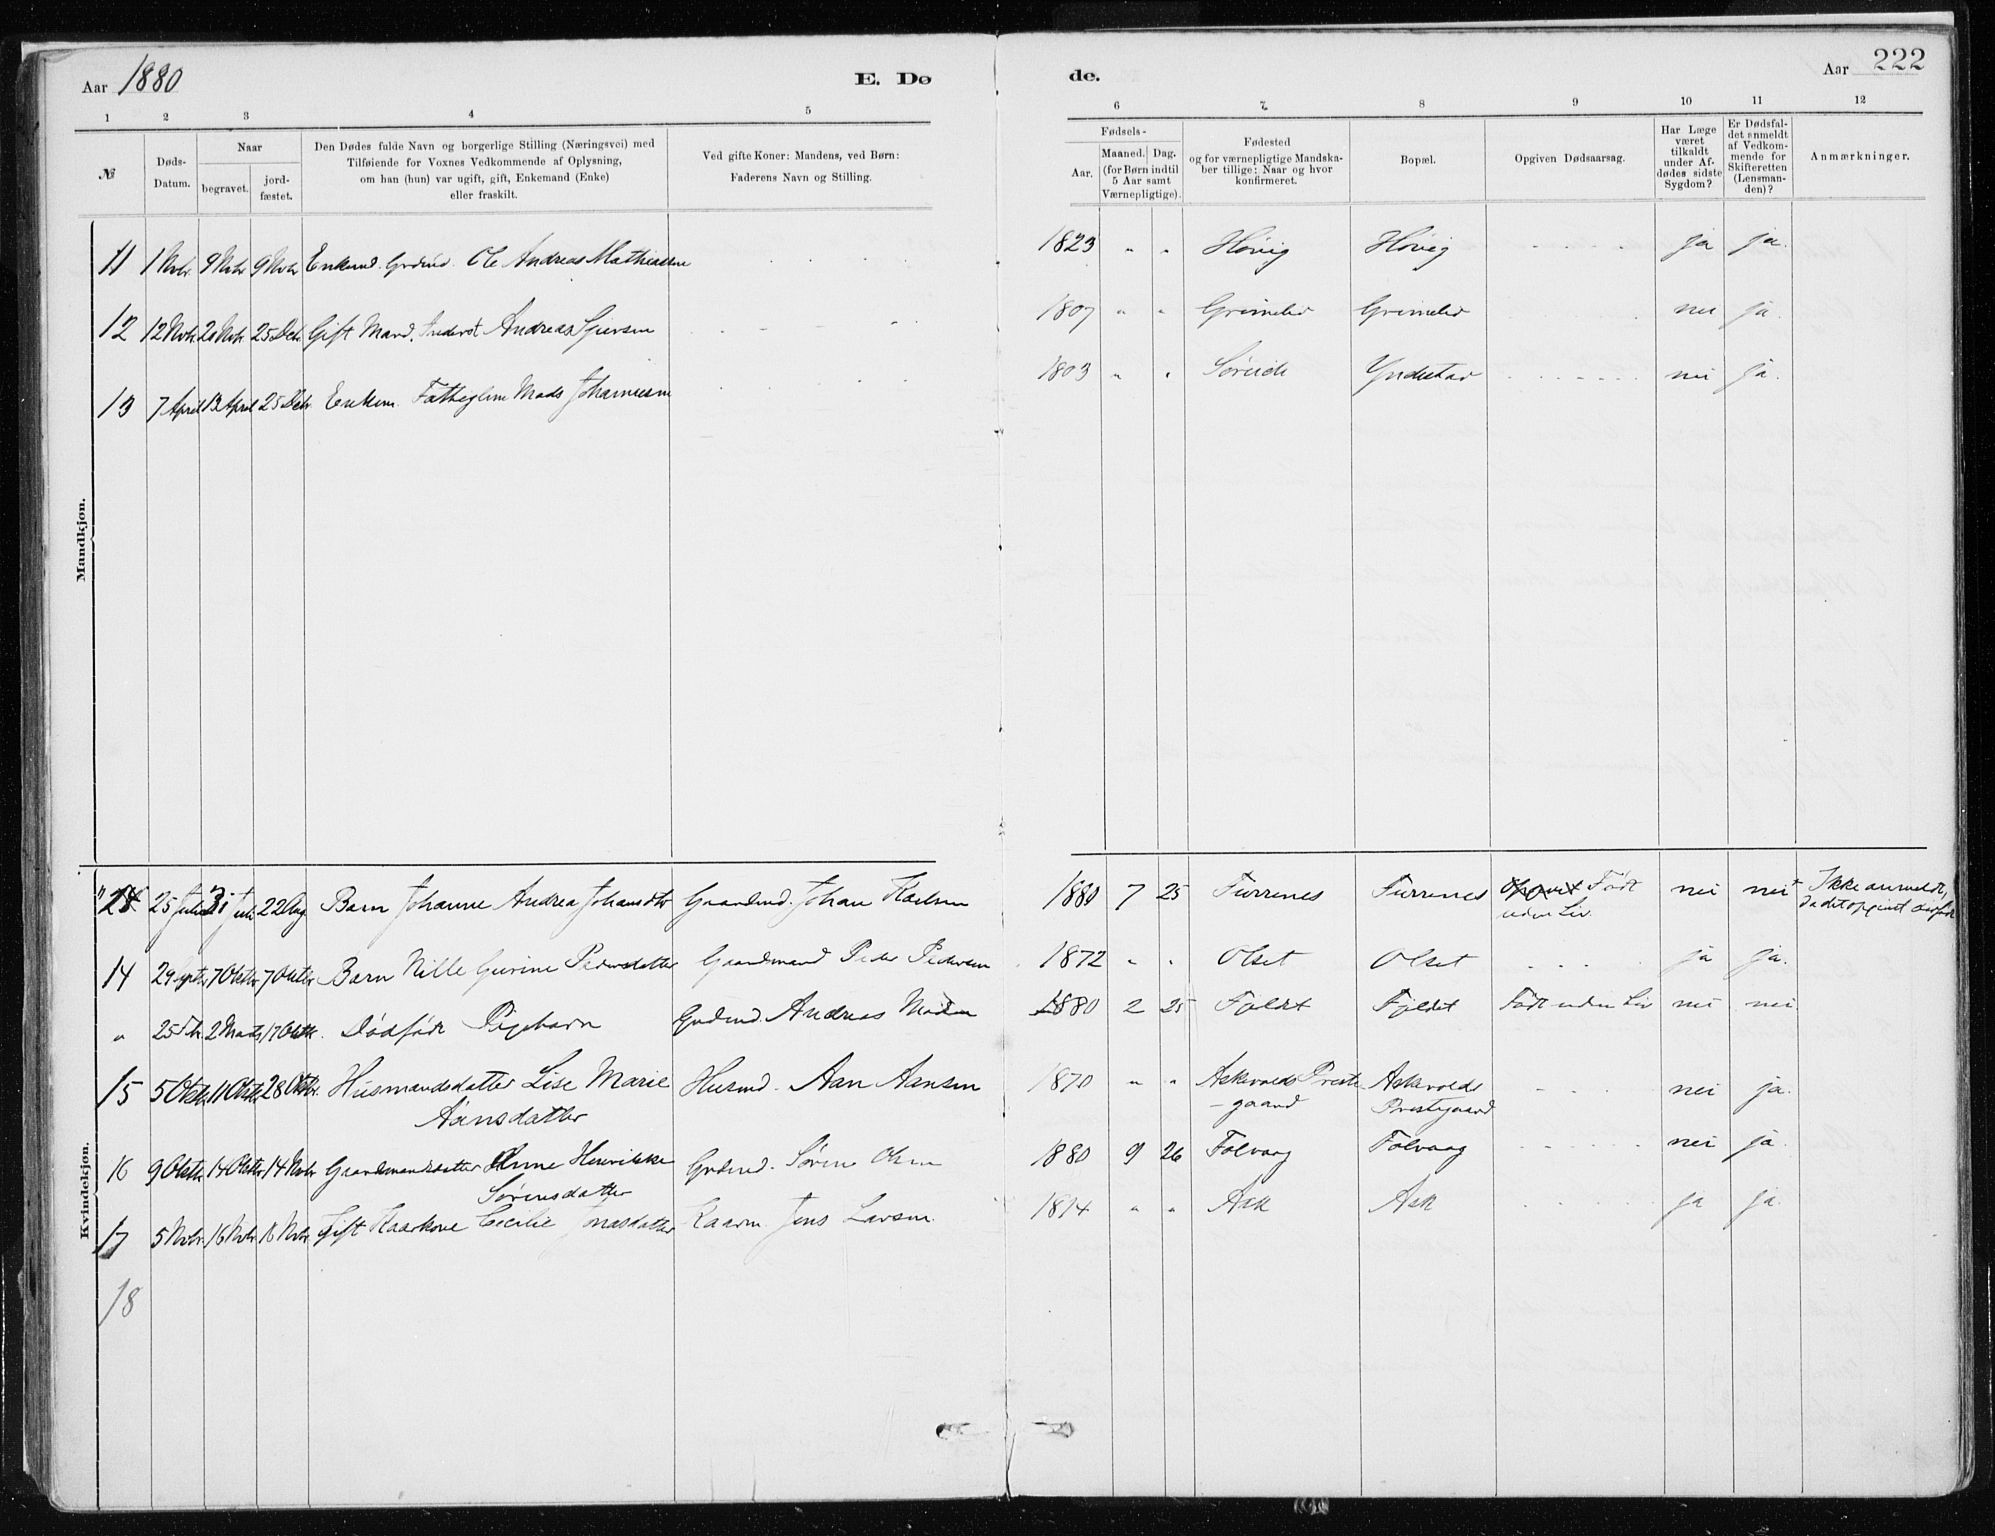 Aar 1880
E. Dø
de.
Aar 222
1 2 3 4 5 6 7. 8 9 10 11 12
№
Døds-
Datum.
Naar
begravet.
jord-
fæstet.
Den Dødes fulde Navn og borgerlige Stilling (Næringsvei) med
Tilføiende for Voxnes Vedkommende af Oplysning,
om han (hun) var ugift, gift, Enkemand (Enke)
eller fraskilt.
Ved gifte Koner: Mandens, ved Børn:
Faderens Navn og Stilling.
Fødsels-
Aar.
Maaned. Dag.
(for Børn indtil
5 Aar samt
Værnepligtige).
Fødested
og for værnepligtige Mandska-
ber tillige: Naar og hvor
konfirmeret.
Bopæl.
Opgiven Dødsaarsag.
Har Læge
været
tilkaldt
under Af-
dødes sidste
Sygdom?
Er Dødsfal-
det anmeldt
af Vedkom-
mende for
Skifteretten
(Lensman-
den)?
Anmærkninger.
Mandkjøn.
11 1 Nvbr. 9 Nvbr 9 Nvbr Enkemd. Grdmd. Ole Andreas Mathiassen 1823 " " Høvig Høvig ja ja.
12 12 Nvbr 20 Nvbr 25 Debr Gift Mand, Inderst Andreas 1807 " " Grimelid Grimelid nei ja.
13 7 April 13 April 25 Debr. Enkem. Fattiglem Mads Johannesen 1803 " " Søreide Yndestad nei ja.
Kvindekjøn.
" 25 Juli 31 Juli 22 Aug Barn Johanne Andrea Johansdtr Gaardmd. Johan Karlsen 1880 7 25 Furrenes Furrenes Født nei nei Ikke anmeldt,
uden Liv. da det opgivet dødfødt
14 29 Septbr 7 Oktbr 7 Oktbr Barn Nille Gurine Pedersdatter Gaardmand Peder Pedersen 1872 " " Olset Olset ja ja.
" 25 Fb. 2 Marts 17 Oktb. Dødfødt Pigebarn Grdmd. Andreas Madsen 1880 2 25 Fjeldet Fjeldet Født uden Liv nei nei
15 5 Oktbr 11 Oktbr 28 Oktbr. Husmandsdatter Lise Marie Husmd. Aan Aansen 1870 " " Askvolds Preste Askvolds nei ja.
Aansdatter -gaard Prestegaard
16 9 Oktbr 14 Oktbr 14 Nvbr Gaardmandsdatter Anne Henrikke Grdmd. Søren Olsen 1880 9 26 Folvaag Folvaag nei ja.
Sørensdatter
17 5 Nvbr. 16 Nvbr 16 Nvbr. Gift Kaarkone Cecilie Jonasdatter Kaarm. Jens Larsen. 1814 " " Ask Ask ja ja.
18